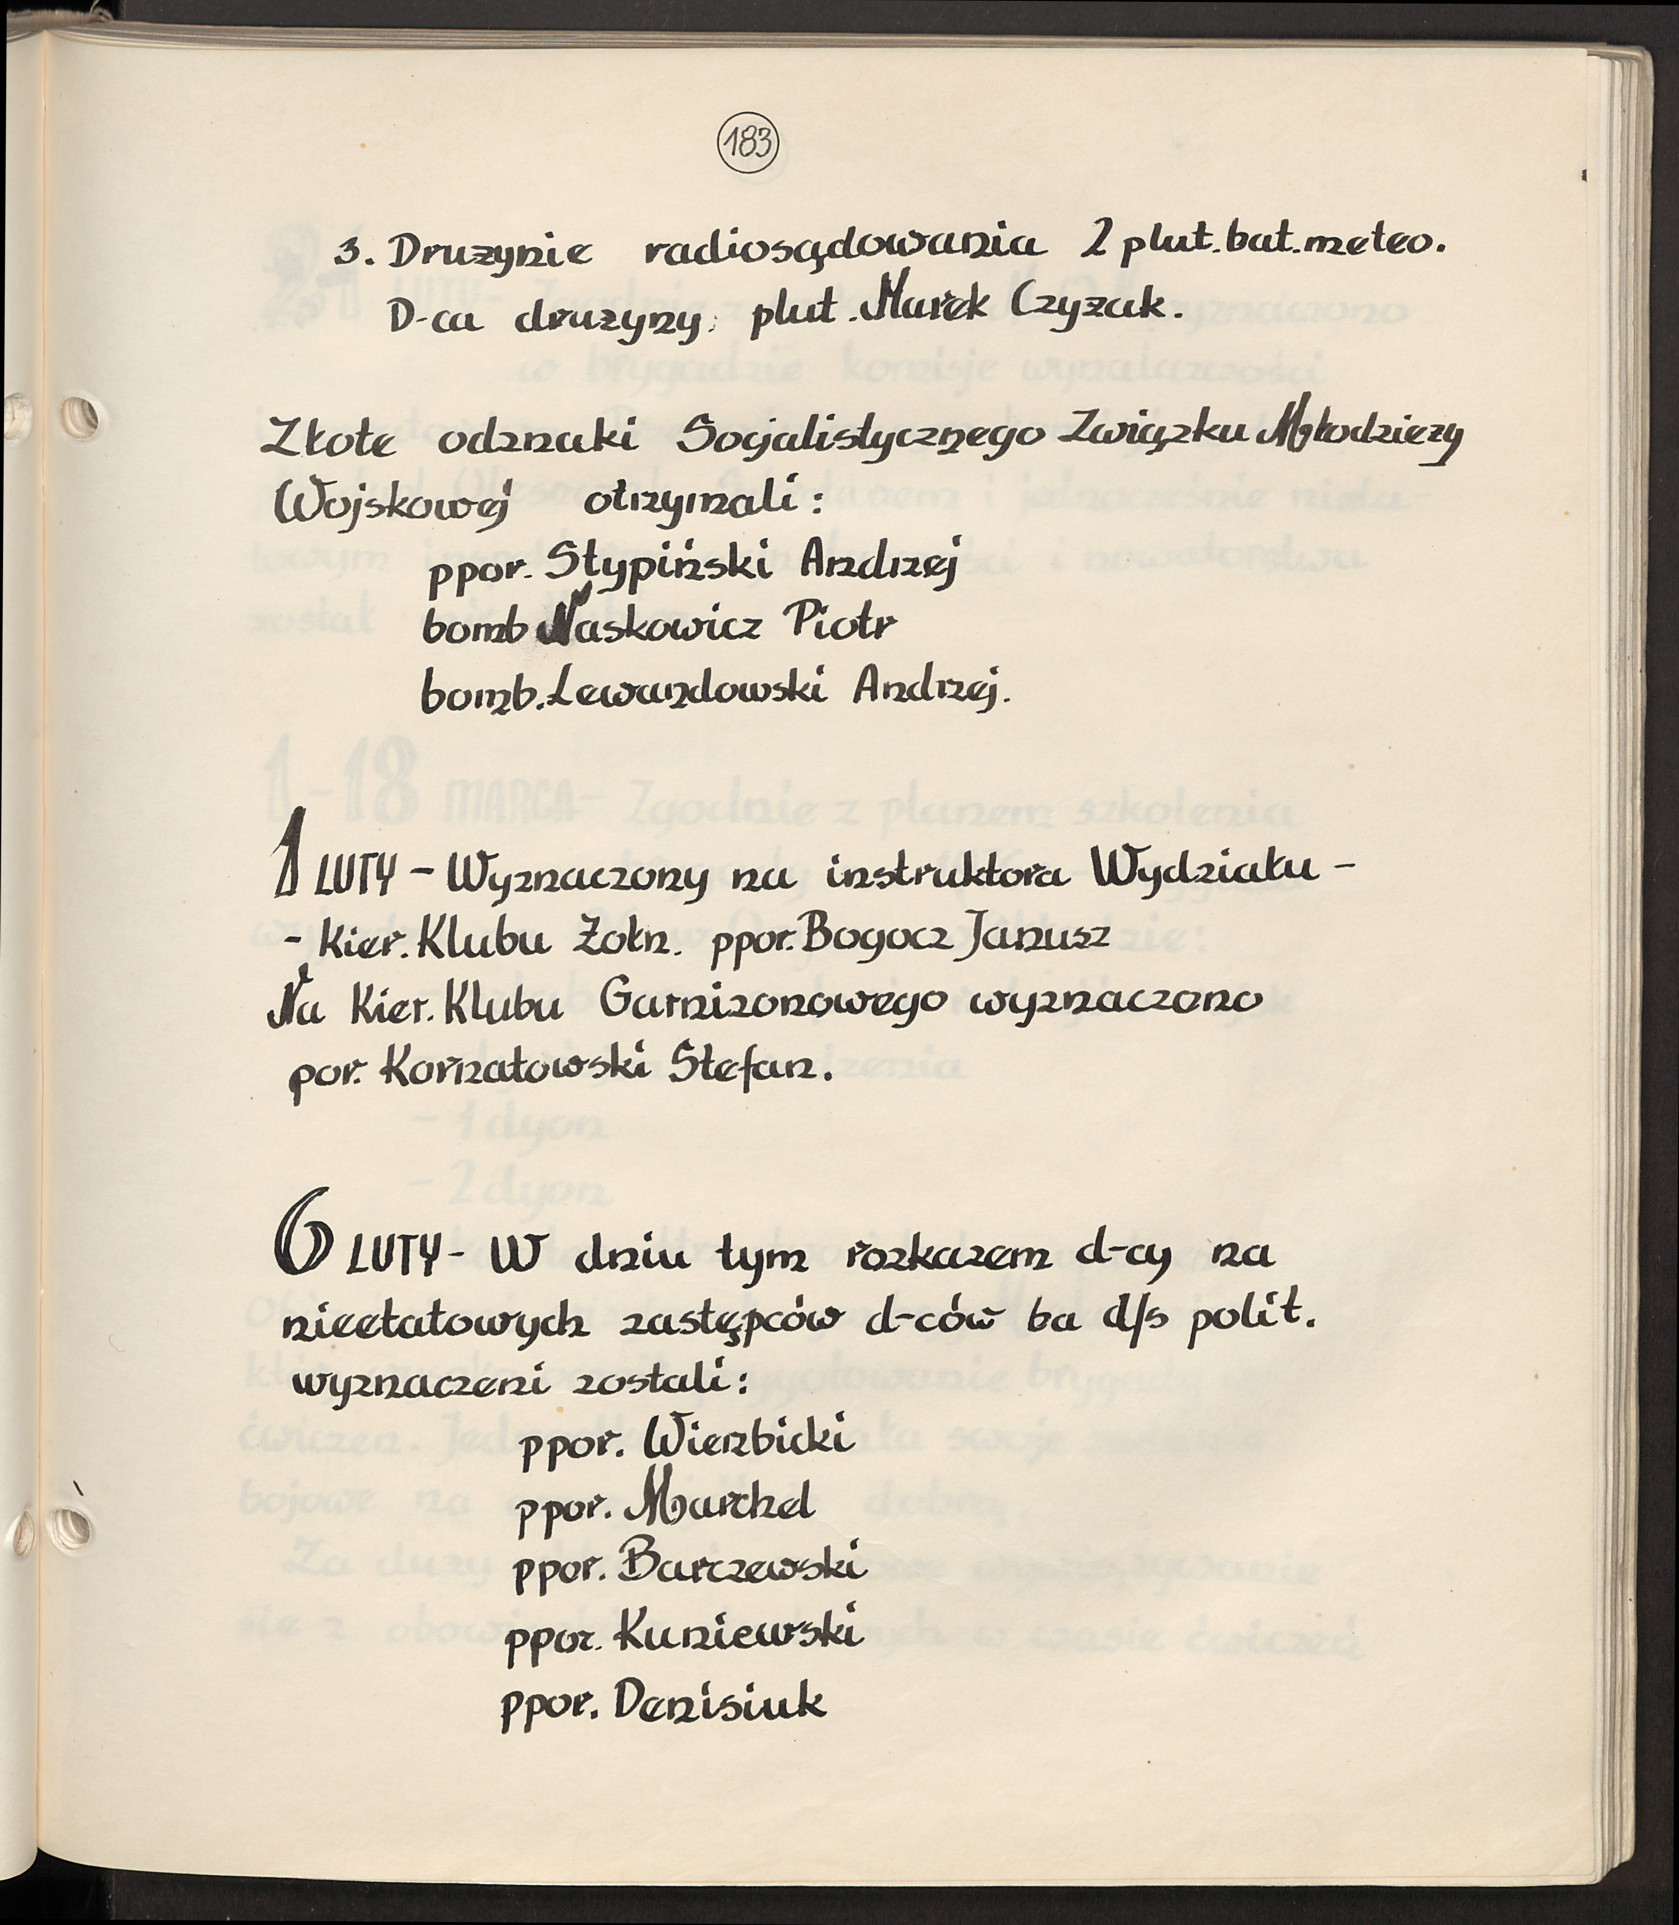 183
3. Drużynie radiosądowania 2 plut. bat. meteo.
D-ca drużyny, plut. Marek Czyżak.
Złote odznaki Socjalistycznego Związku Młodzieży
Wojskowej otrzymali:
ppor. Stypiński Andrzej
bomb Naskowicz Piotr
bomb. Lewandowski Andrzej.
1 LUTY - Wyznaczony na instruktora Wydziału -
- Kier. Klubu Żołn. ppor. Bogocz Janusz
Na Kier. Klubu Garnizonowego wyznaczono
por. Kornatowski Stefan.
6 LUTY - W dniu tym rozkazem d-cy na
nieetatowych zastępców d-ców ba d/s polit.
wyznaczeni zostali:
ppor. Wierzbicki
ppor. Marchel
ppor. Barczewski
ppor. Kuniewski
ppor. Denisiuk